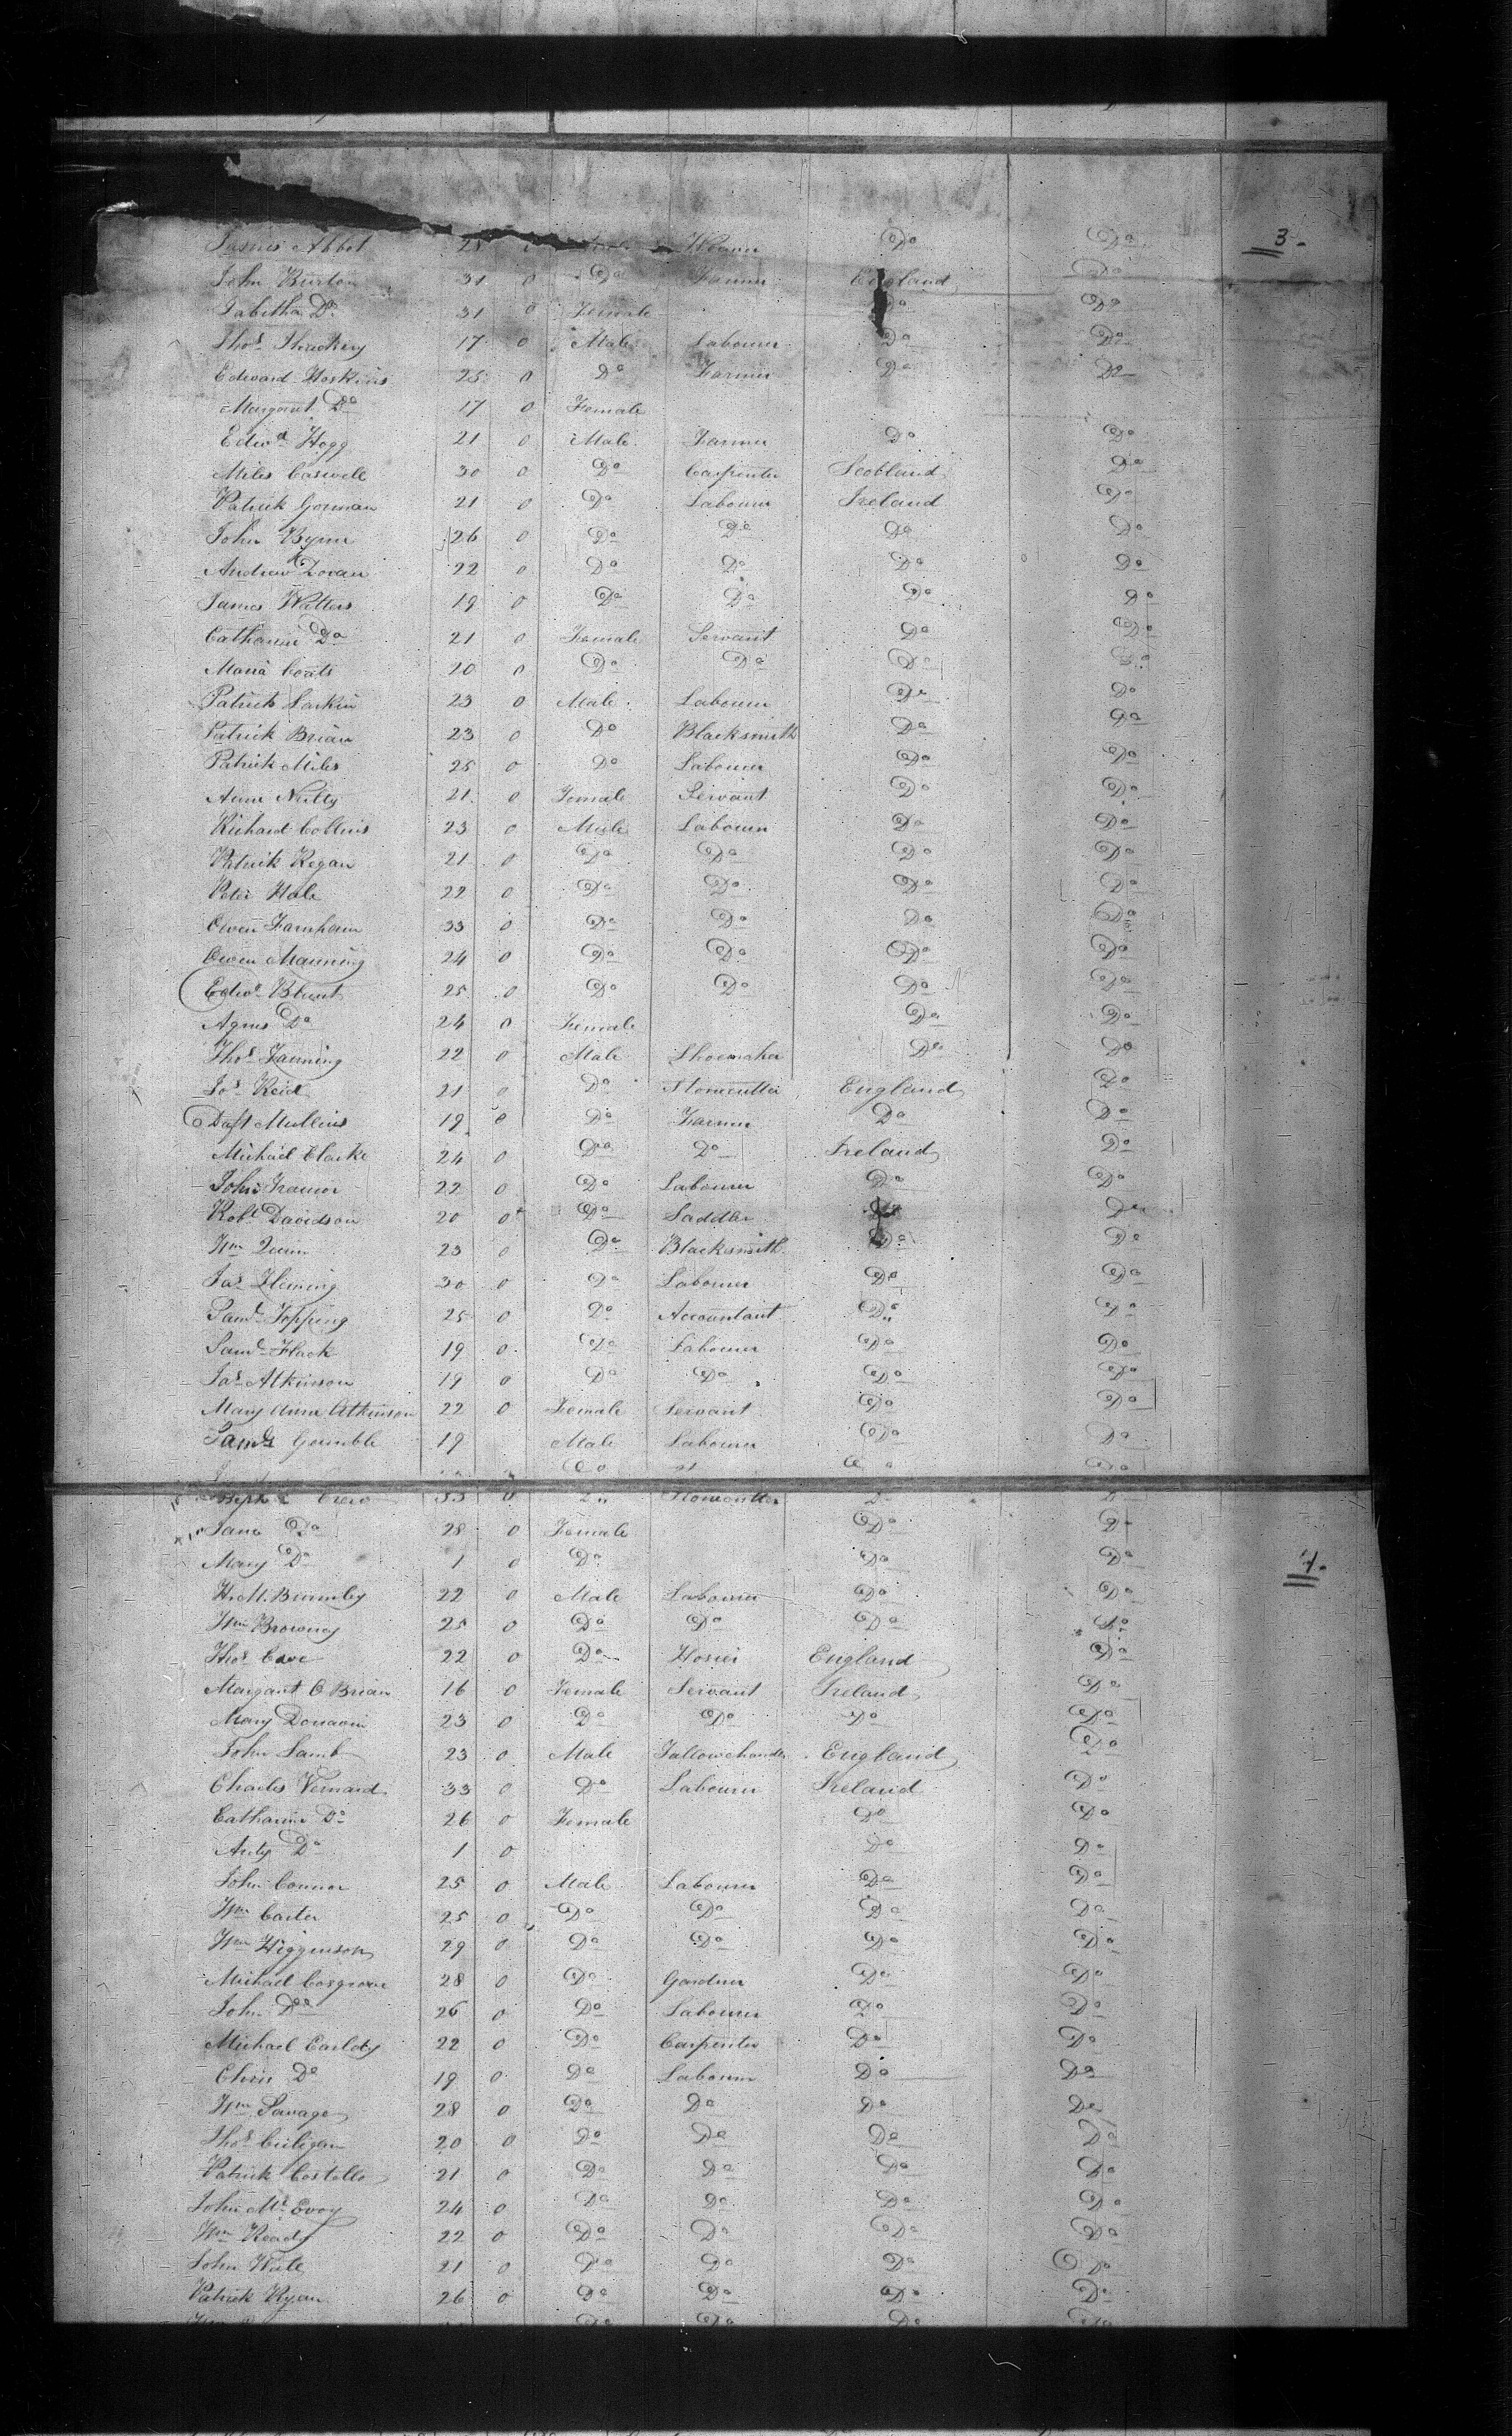 James Abbot 28 Weaver Do Do 3
John Burton 31 0 Do Farmer England Do
Tabitha Do 31 0 Female Do Do
Thos Thackery 17 0 Male Labourer Do Do
Edward Hoskins 25 0 Do Farmer Do Do
Margaret Do 17 0 Female
Edwd Hogg 21 0 Male Farmer Do Do
Miles Caswell 30 0 Do Carpenter Scotland Do
Patrick Gorman 21 0 Do Labourer Ireland Do
John Byrne 26 0 Do Do Do Do
Andrew Doran 22 0 Do Do Do Do
James Watters 19 0 Do Do Do Do
Catharine Do 21 0 Female Servant Do Do
Maria Coats 20 0 Do Do Do Do
Patrick Larkin 23 0 Male Labourer Do Do
Patrick Brian 23 0 Do Blacksmith Do Do
Patrick Miles 25 0 Do Labourer Do Do
Anne Nulty 21 0 Female Servant Do Do
Richard Collins 23 0 Male Labourer Do Do
Patrick Regan 21 0 Do Do Do Do
Peter Hale 22 0 Do Do Do Do
Owen Farnham 33 0 Do Do Do Do
Owen Manning 24 0 Do Do Do Do
Edwd Blunt 25 0 Do Do Do Do
Agnes Do 24 0 Female Do Do
Thos Fanning 22 0 Male Shoemaker Do Do
Jos Reid 21 0 Do Stonecutter England Do
Mullins 19 0 Do Farmer Do Do
Michael Clarke 24 0 Do Do Ireland Do
John 22 0 Do Labourer Do Do
Robt Davidson 20 0 Do Saddler Do Do
Wm Quinn 23 0 Do Blacksmith Do Do
Jas Fleming 30 0 Do Labourer Do Do
Saml Topping 25 0 Do Accountant Do Do
Saml Flack 19 0 Do Labourer Do Do
Jas Atkinson 19 0 Do Do Do Do
Mary Anne Atkinson 22 0 Female Servant Do Do
Gamble 19 Male Labourer Do Do
33 0 Do Stonecutter Do Do
Jane Do 28 0 Female Do Do
Mary Do 1 0 Do Do Do 4.
H. M. Brumley 22 0 Male Labourer Do Do
Wm Browney 25 0 Do Do Do Do
Thos Cave 22 0 Do Hosier England Do
Margaret O Brian 16 0 Female Servant Ireland Do
Mary Donavin 23 0 Do Do Do Do
John Lamb 23 0 Male Tallowchandler England Do
Charles Vernard 33 0 Do Labourer Ireland Do
Catharine Do 26 0 Female Do Do
Do 1 0 Do Do
John Connor 25 0 Male Labourer Do Do
Wm Carter 25 0 Do Do Do Do
Wm Higginson 29 0 Do Do Do Do
Michael Cosgrove 28 0 Do Gardner Do Do
John Do 26 0 Do Labourer Do Do
Michael 22 0 Do Carpenter Do Do
Chris Do 19 0 Do Labourer Do Do
Wm Savage 28 0 Do Do Do Do
Thos Culigan 20 0 Do Do Do Do
Patrick Costello 21 0 Do Do Do Do
John Mc Evoy 24 0 Do Do Do Do
Wm Ready 22 0 Do Do Do Do
John 21 0 Do Do Do Do
Patrick Ryan 26 0 Do Do Do Do
Do Do Do Do